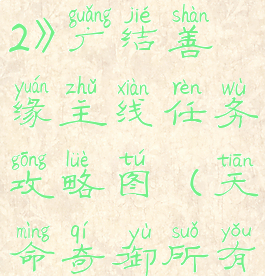 guǎng jié shàn
2》广结善
yuán zhǔ xiàn rèn wù
缘主线任务
gōng lüè tú tiān
攻略图（天
mìng qí yù suǒ yǒu
命奇御所有